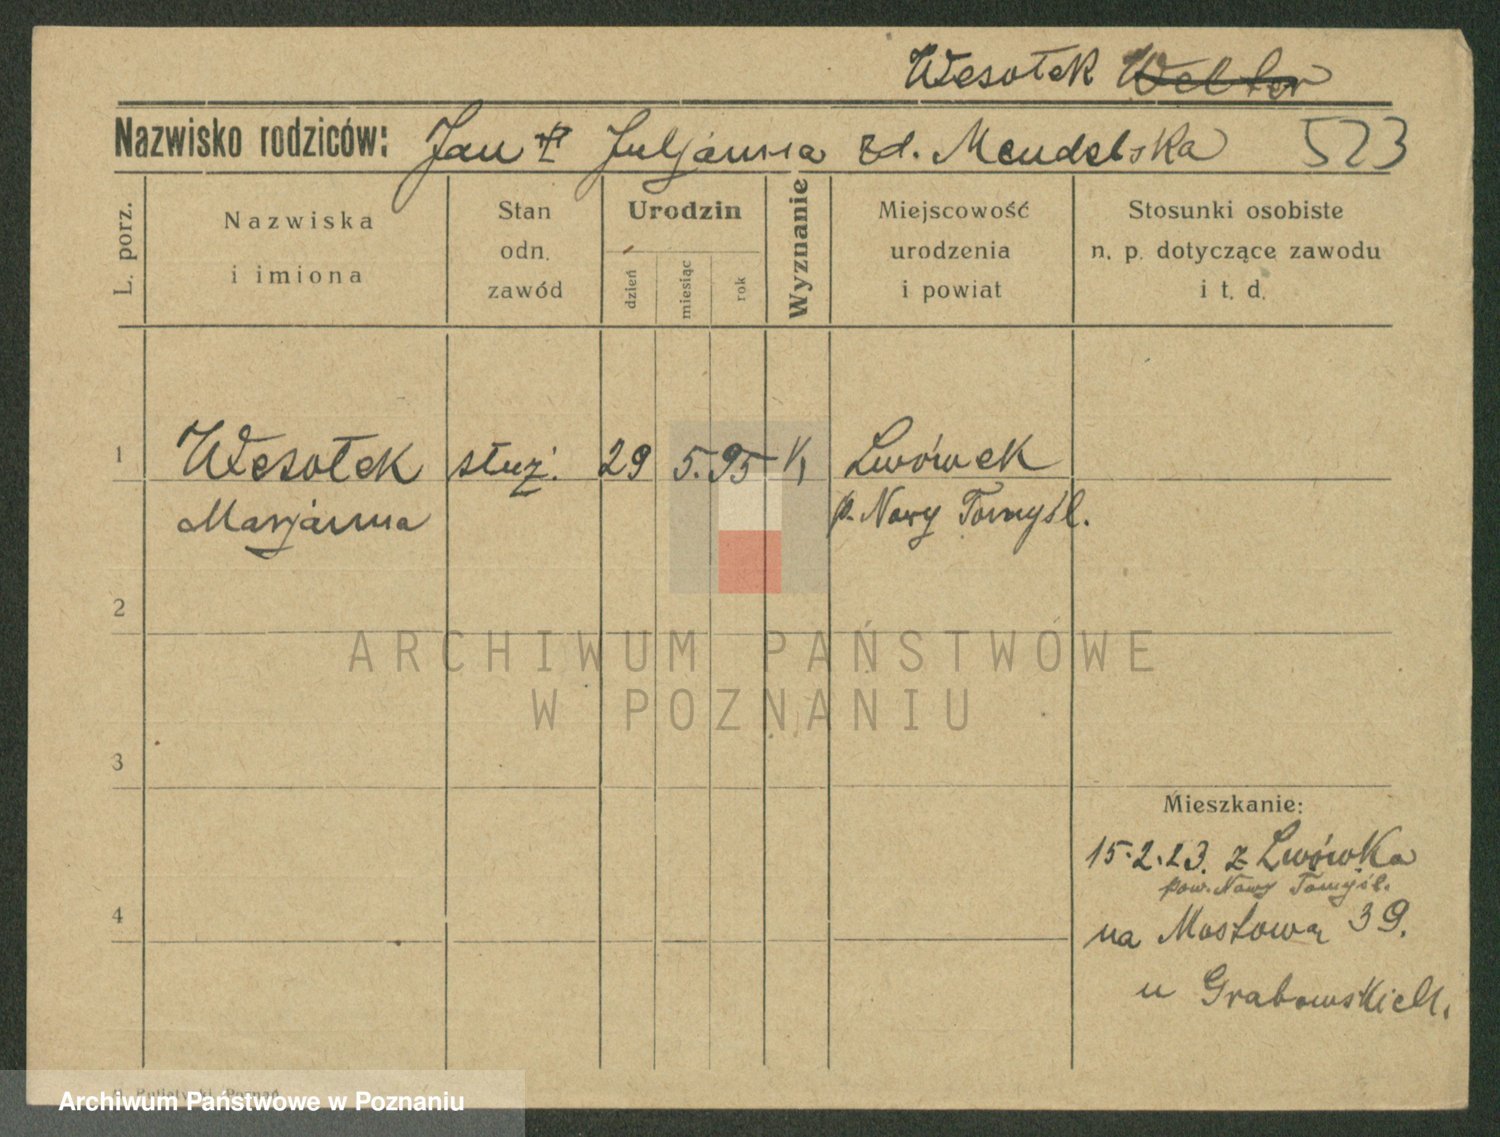 Wesołek Welter
Nazwisko rodziców: Jan Juljanna zd. Mendelska 523
L. porz.
Nazwiska
i imiona
Stan
odn.
zawód
Urodzin
dzień
miesiąc
rok
Wyznanie
Miejscowość
urodzenia
i powiat
Stosunki osobiste
n. p. dotyczące zawodu
i t. d.
1 Wesołek służ. 29 5. 95 K, Lwówek
Marjanna p. Nowy Tomyśl.
2
ARCHIWUM PAŃSTWOWE
W POZNANIU
3
Mieszkanie:
15.2.23. z Lwówka
pow. Nowy Tomyśl.
4
na Mostową 39.
u Grabowskich.
Poznań
Archiwum Państwowe w Poznaniu